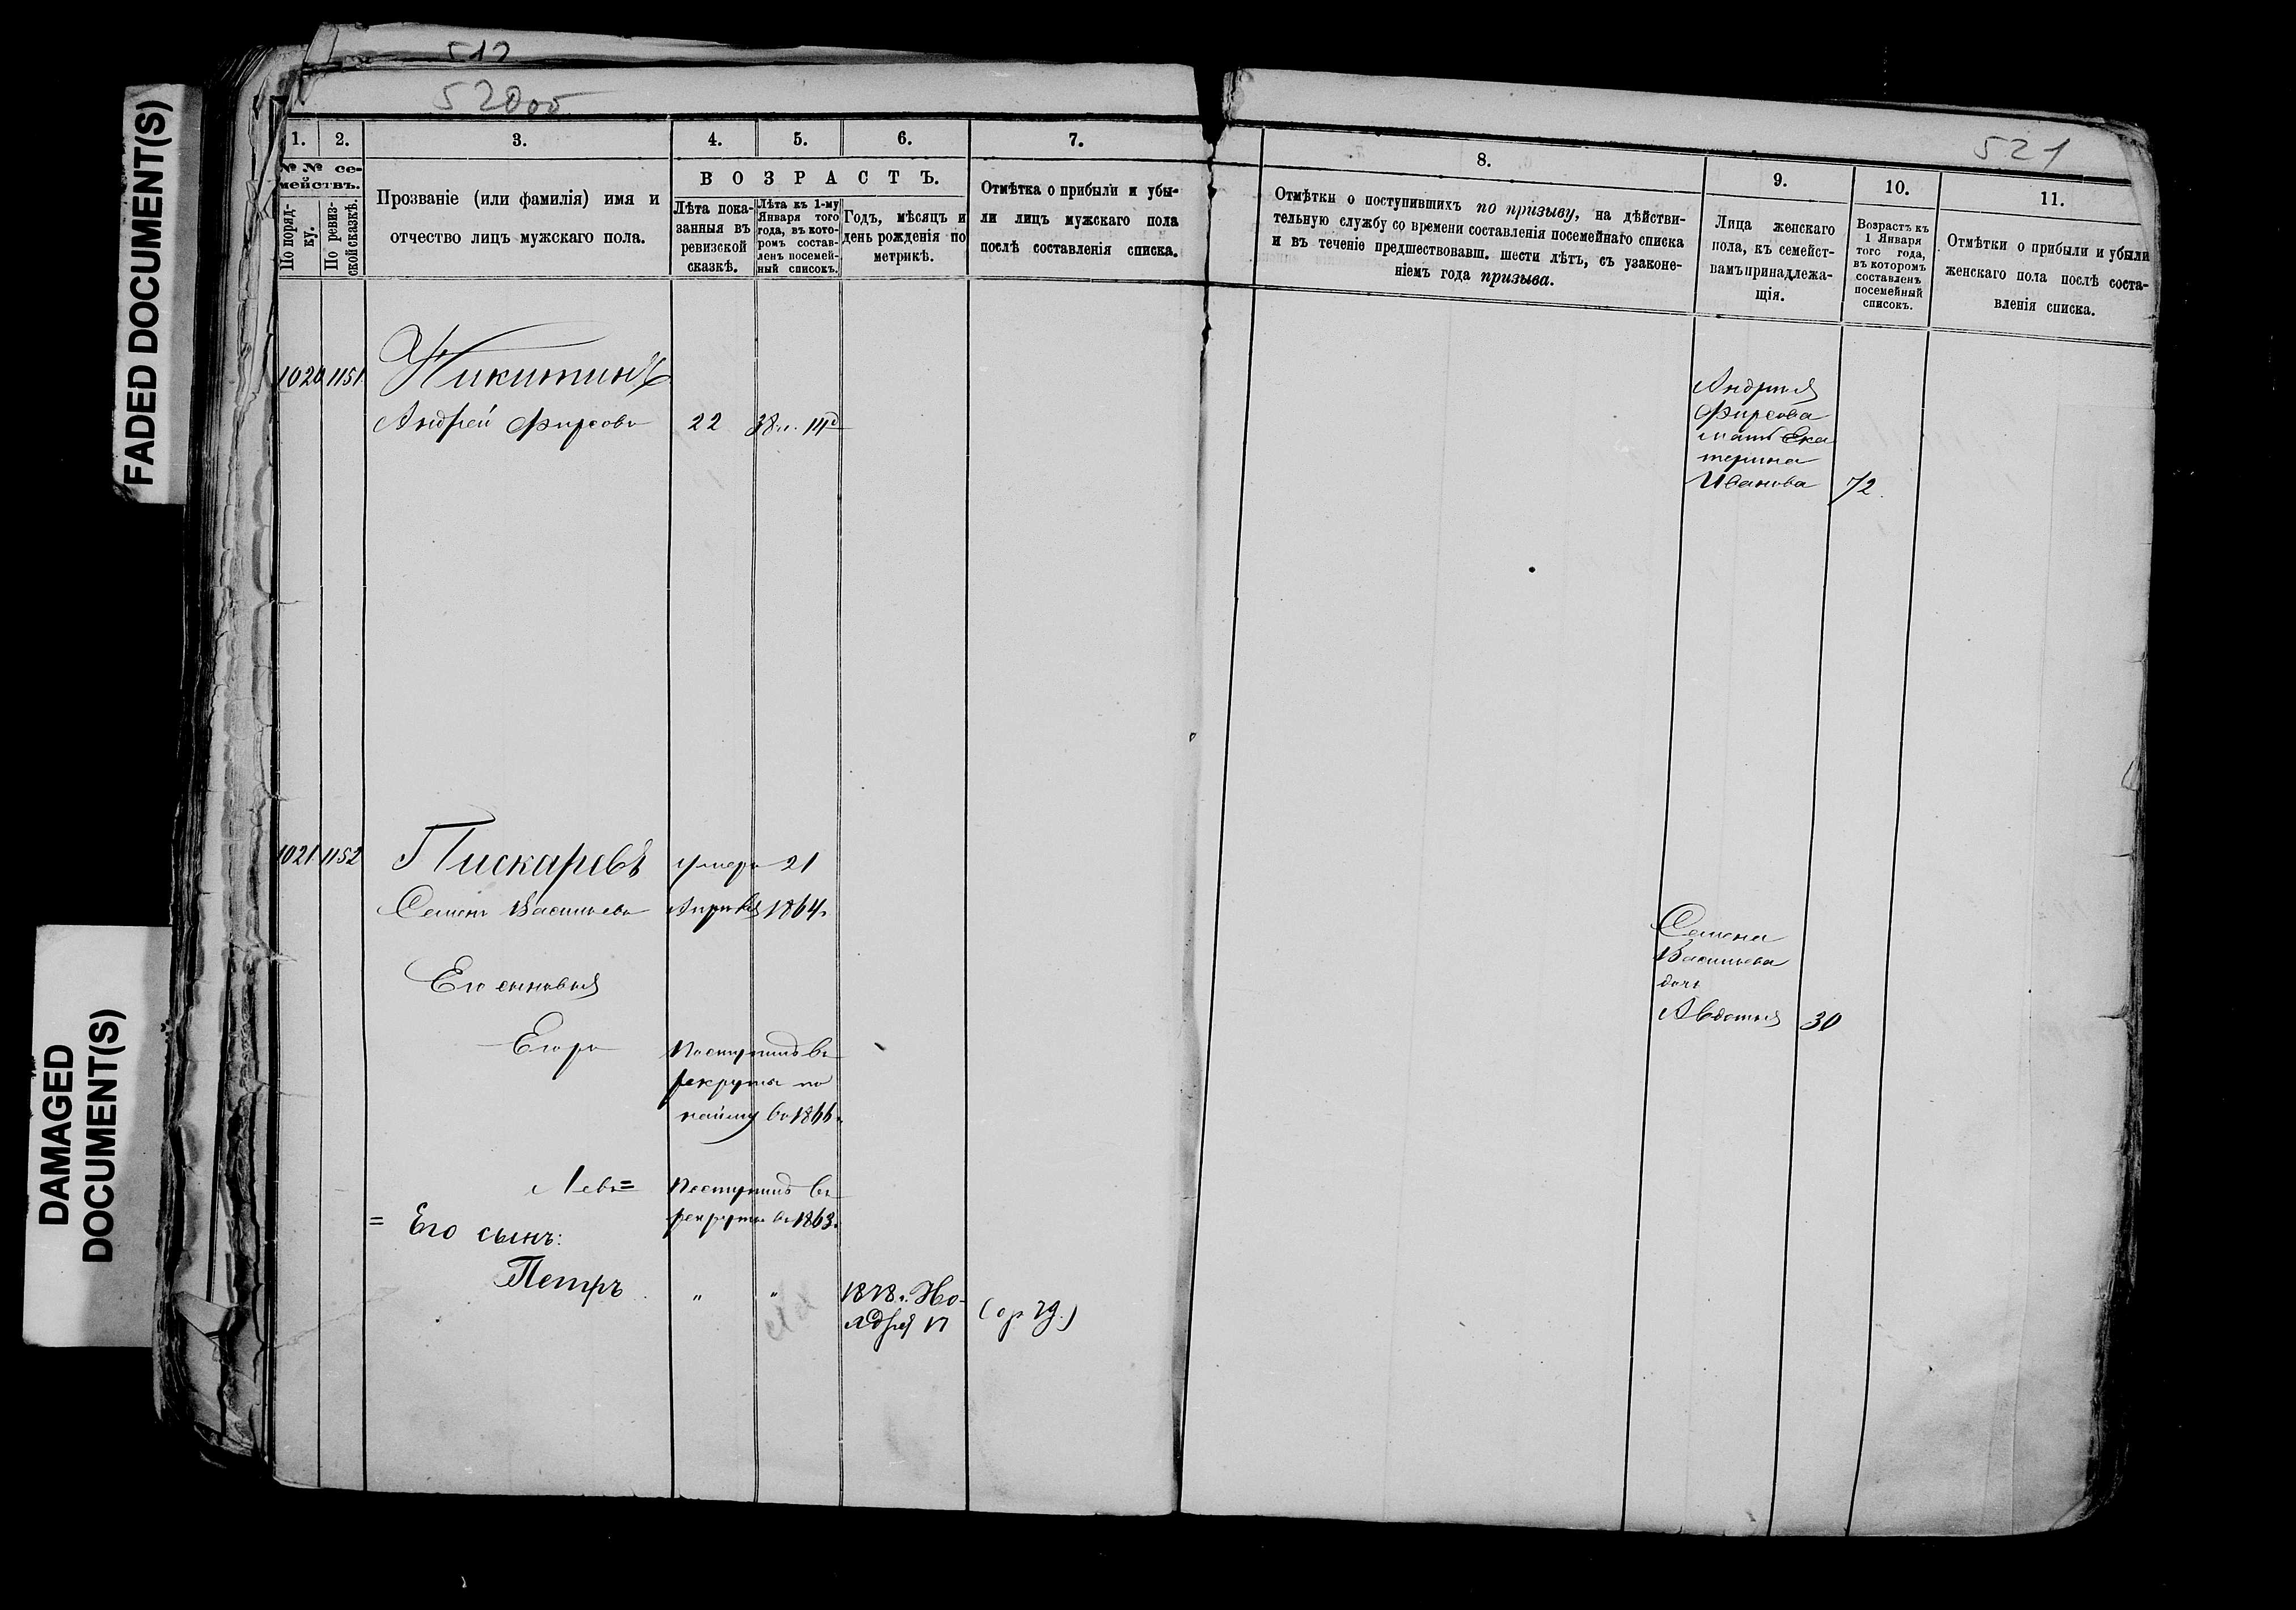 FADED DOCUMENT(S)
DAMAGED
DOCUMENT(S)
512
520об
521
1.
2.
3.
4.
5.
6.
7.
8.
9.
10.
11.
№ № се-
мействъ.
По поряд-
ку.
По ревиз-
ской сказкѣ.
Прозваніе (или фамилія) имя и
отчество лицъ мужскаго пола.
ВОЗРАСТЪ.
Лѣта пока-
занныя въ
ревизской
сказкѣ.
Лѣта къ 1-му
Января того
года, въ кото-
ромъ состав-
ленъ посемей-
ный списокъ.
Годъ, мѣсяцъ и
день рожденія по
метрикѣ.
Отмѣтка о прибыли и убы-
ли лицъ мужскаго пола
послѣ составленія списка.
Отмѣтки о поступившихъ по призыву, на дѣйстви-
тельную службу со времени составленія посемейнаго списка
и въ теченіе предшествовавш. шести лѣтъ, съ узаконе-
ніемъ года призыва.
Лица женскаго
пола, къ семейст-
вамъ принадлежа-
щія.
Возрастъ къ
1 Января
того года,
въ которомъ
составленъ
посемейный
списокъ.
Отмѣтки о прибыли и убыли
женскаго пола послѣ соста-
вленія списка.
1020 1151 Никитинъ
Андрей Фирсовъ 22 38
Андрея
Фирсова
мать Ека
терина
Иванова 72.
1021 1152 Пискаревъ умеръ 21
Семенъ Васильевъ Апрѣля 1864.
Его сыновья
Егоръ Поступилъ въ
рекруты по
найму въ 1866.
Левъ = Поступилъ въ
рекруты въ 1863.
= Его сынъ:
Петръ " " 1878. Но-
ября 17
Семена
Васильева
дочь
Авдотья 30